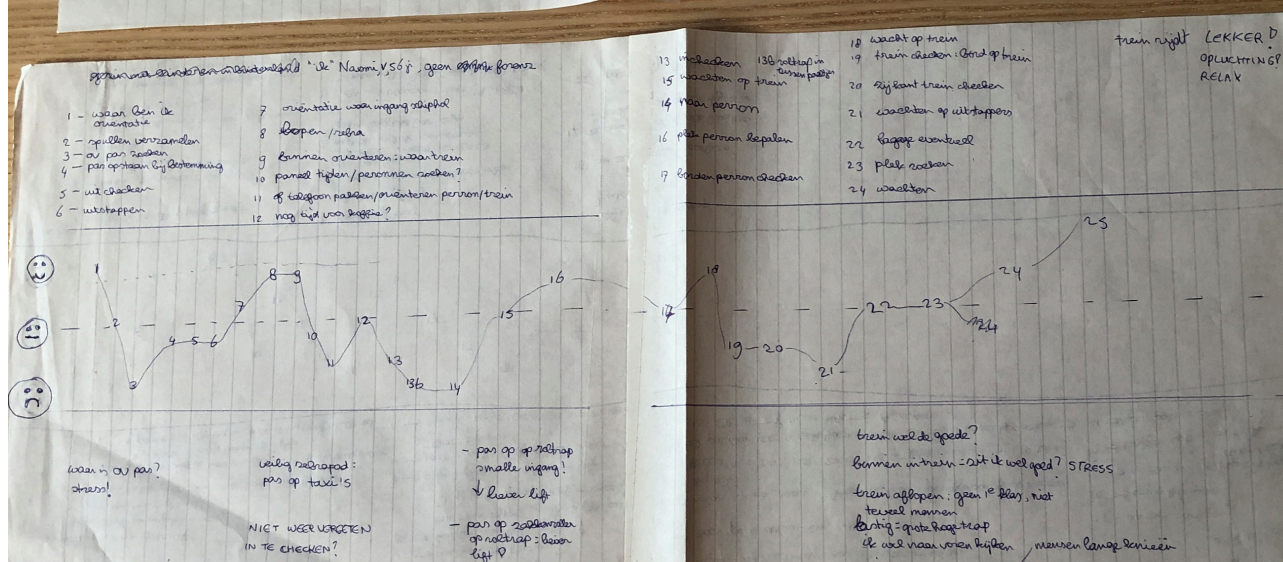 "ik" Naomi, V, 56 j, geen forens
1 - waar ben ik
orientatie
2 - spullen verzamelen
3 - ov pas zoeken
4 - pas opstaan bij bestemming
5 - uitchecken
6 - uitstappen
7 orientatie waar ingang schiphol
8 lopen/zebra
9 binnen orienteren: waar trein
10 paneel tijden/perronnen zoeken?
11 of telefoon pakken/orienteren perron/trein
12 nog tijd voor koffie?
13 inchecken 13b roltrap in
tussen paaltjes
15 wachten op trein
14 naar perron
16 plek perron bepalen
17 borden perron checken
18 wacht op trein
19 trein checken: bord op trein
20 zijkant trein checken
21 wachten op uitstappers
22 bagage eventueel
23 plek zoeken
24 wachten
trein rijdt LEKKER!
OPLUCHTING!
RELAX
1
2
3
4
5
6
7
8
9
10
11
12
13
13b
14
15
16
17
18
19
20
21
22
23
24
24
25
waar is OV pas?
stress!
veilig zebrapad:
pas op taxi's
NIET WEER VERGETEN
IN TE CHECKEN?
- pas op op roltrap
smalle ingang!
↓ liever lift
- pas op
op roltrap = liever
lift!
trein wel de goede?
binnen in trein = zit ik wel goed? STRESS
trein aflopen: geen 1e klas, niet
teveel mensen
lastig = grote hoge trap
ik wil naar voren kijken, mensen lange knieën